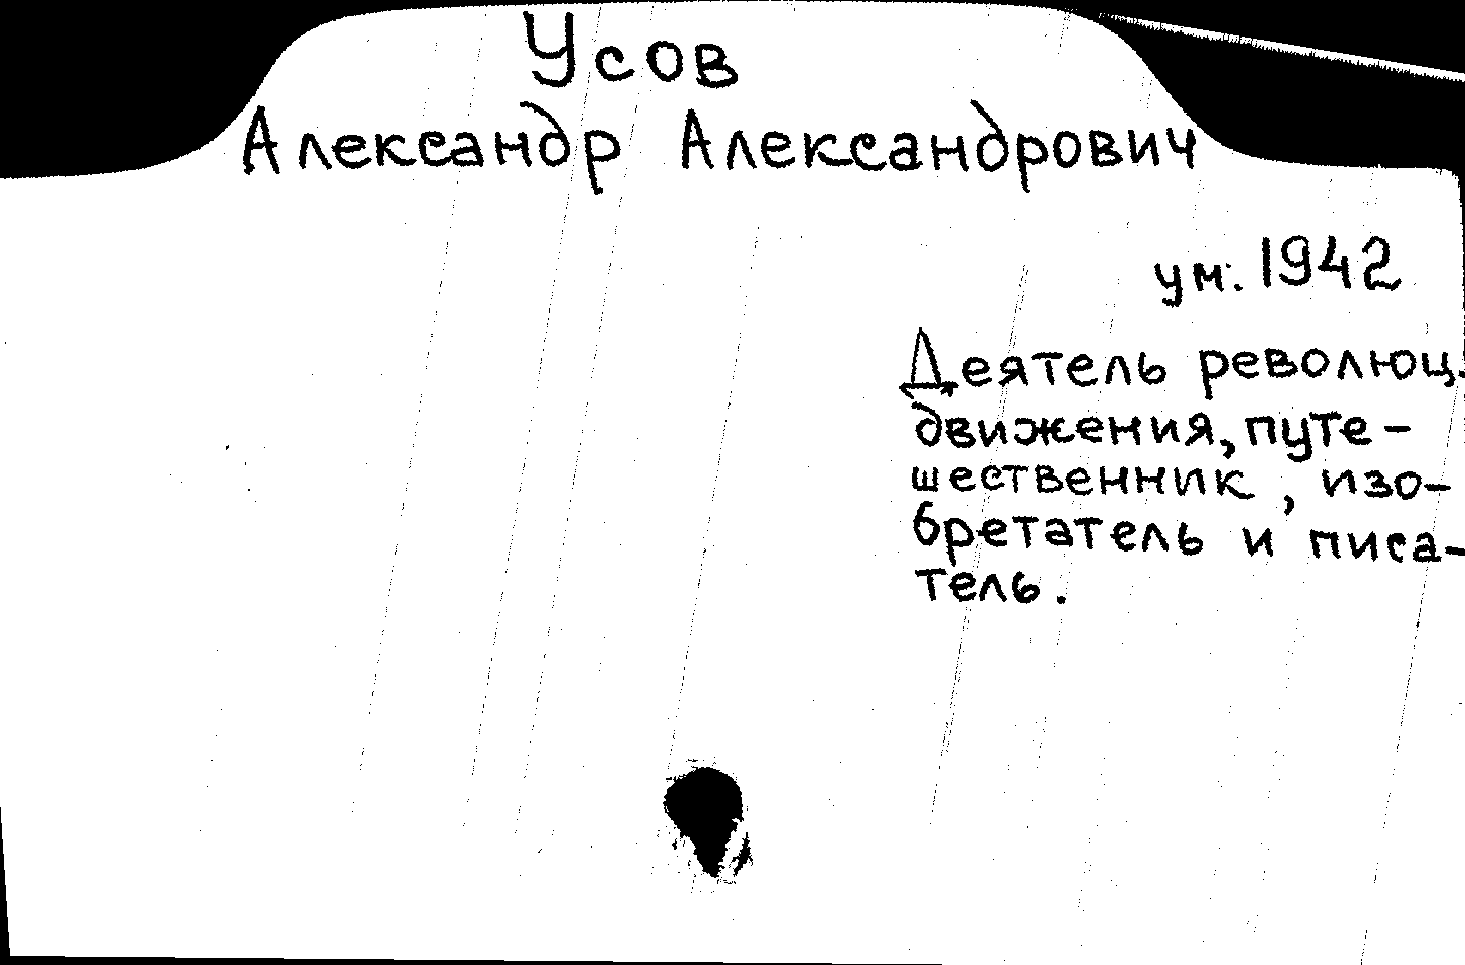 Усов
Александр Александрович
ум. 1942
Деятель революц.
движения, путе-
шественник, изо-
бретатель и писа-
тель.